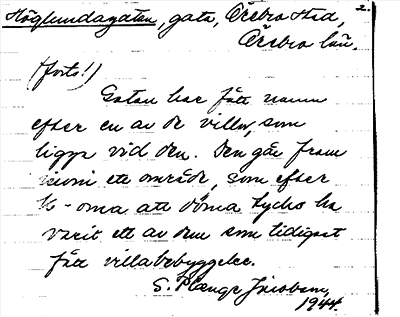 Höglundagatan, gata, Örebro stad, 2.
Örebro län.
(forts!)
Gatan har fått namn
efter en av de villor, som
ligga vid den. Den går fram
inom ett område, som efter
k-orna att döma tycks ha
varit ett av dem som tidigast
fått villabebyggelse.
S. Plange Jacobson,
1944.